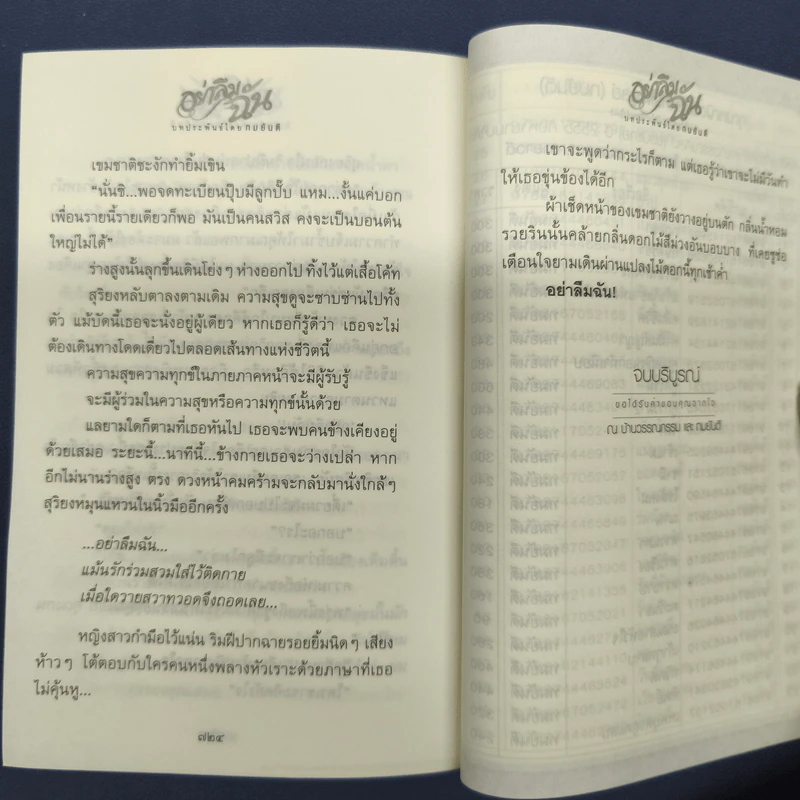 อย่าลืมฉัน
บทประพันธ์โดย ทมยันตี
เขมชาติชะงักทำยิ้มเขิน
“นั่นซิ...พอจดทะเบียนปุ๊บมีลูกปั๊บ แหม...งั้นแค่บอก
เพื่อนรายนี้รายเดียวก็พอ มันเป็นคนสวิส คงจะเป็นบอนต้น
ใหญ่ไม่ได้”
ร่างสูงนั้นลุกขึ้นเดินโย่งๆ ห่างออกไป ทิ้งไว้แต่เสื้อโค้ท
สุริยงหลับตาลงตามเดิม ความสุขดูจะซาบซ่านไปทั้ง
ตัว แม้บัดนี้เธอจะนั่งอยู่ผู้เดียว หากเธอก็รู้ดีว่า เธอจะไม่
ต้องเดินทางโดดเดี่ยวไปตลอดเส้นทางแห่งชีวิตนี้
ความสุขความทุกข์ในภายภาคหน้าจะมีผู้รับรู้
จะมีผู้ร่วมในความสุขหรือความทุกข์นั้นด้วย
แลยามใดก็ตามที่เธอหันไป เธอจะพบคนข้างเคียงอยู่
ด้วยเสมอ ระยะนี้...นาทีนี้...ข้างกายเธอจะว่างเปล่า หาก
อีกไม่นานร่างสูง ตรง ดวงหน้าคมคร้ามจะกลับมานั่งใกล้ๆ
สุริยงหมุนแหวนในนิ้วมืออีกครั้ง
...อย่าลืมฉัน...
แม้นรักร่วมสวมใส่ไว้ติดกาย
เมื่อใดวายสวาทวอดจึงถอดเลย...
หญิงสาวกำมือไว้แน่น ริมฝีปากฉายรอยยิ้มนิดๆ เสียง
ห้าวๆ โต้ตอบกับใครคนหนึ่งพลางหัวเราะด้วยภาษาที่เธอ
ไม่คุ้นหู...
๗๒๔
อย่าลืมฉัน
บทประพันธ์โดย ทมยันตี
เขาจะพูดว่ากระไรก็ตาม แต่เธอรู้ว่าเขาจะไม่มีวันทำ
ให้เธอขุ่นข้องได้อีก
ผ้าเช็ดหน้าของเขมชาติยังวางอยู่บนตัก กลิ่นน้ำหอม
รวยรินนั้นคล้ายกลิ่นดอกไม้สีม่วงอันบอบบาง ที่เคยชูช่อ
เตือนใจยามเดินผ่านแปลงไม้ดอกนี้ทุกเช้าค่ำ
อย่าลืมฉัน!
จบบริบูรณ์
ขอได้รับคำขอบคุณจากใจ
ณ บ้านวรรณกรรม และ ทมยันตี